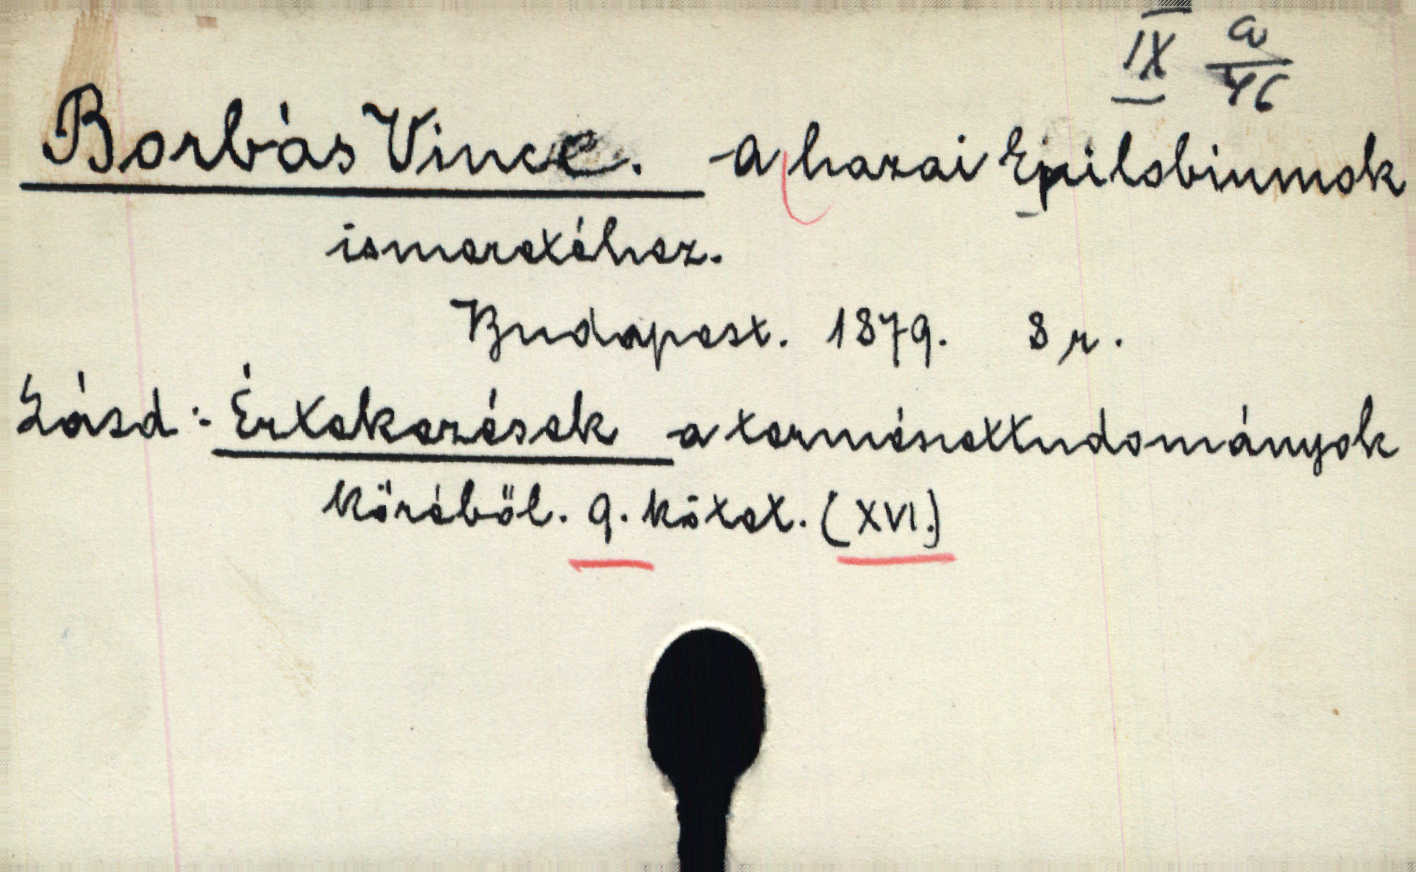 IX a/46
Borbás Vince. A hazai Epilobiumok
ismeretéhez.
Budapest. 1879. 8 r.
Lásd:- Értekezések a természettudományok
köréből. 9. kötet. (XVI.)